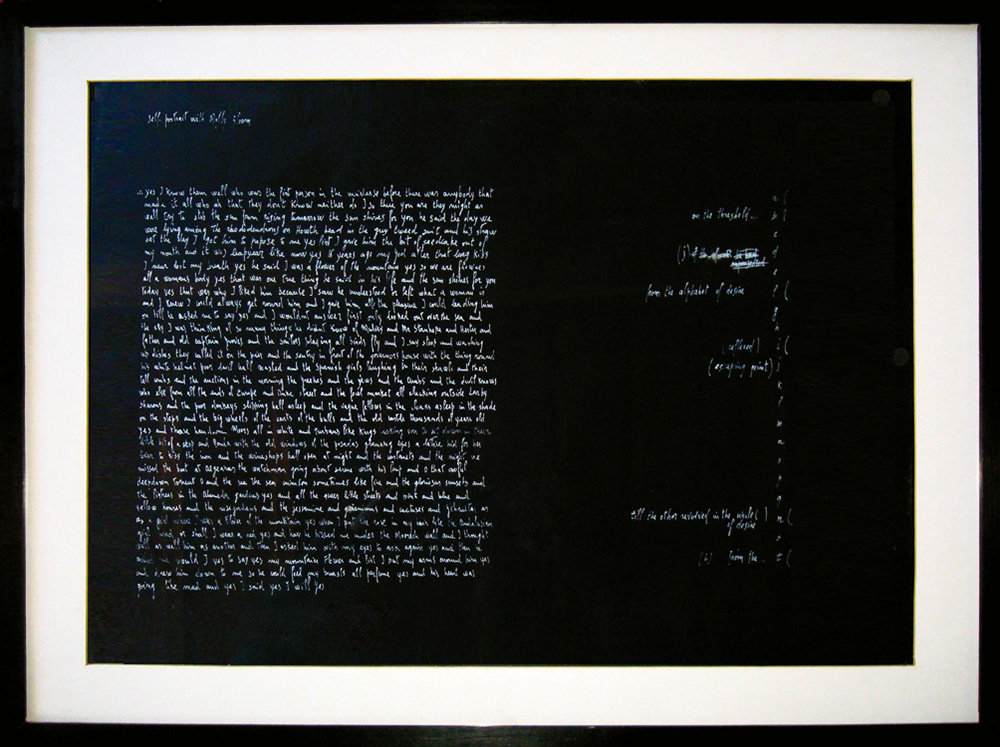 self portrait with Molly Bloom
yes I know them well who was the first person in the universe before there was anybody that
made it all who ah that they don't know neither do I so there you are they might as
well try to stop the sun from rising tomorrow the sun shines for you he said the day we
were lying among the rhododendrons on Howth head in the grey tweed suit and his straw
hat the day I got him to propose to me yes first I gave him the bit of seedcake out of
my mouth and it was leapyear like now yes 16 years ago my God after that long kiss
I near lost my breath yes he said I was a flower of the mountain yes so we are flowers
all a womans body yes that was one true thing he said in his life and the sun shines for you
today yes that was why I liked him because I saw he understood or felt what a woman is
and I knew I could always get round him and I gave him all the pleasure I could leading him
on till he asked me to say yes and I wouldnt answer first only looked out over the sea and
the sky I was thinking of so many things he didnt know of Mulvey and Mr Stanhope and Hester and
father and old captain Groves and the sailors playing all birds fly and I say stoop and washing
up dishes they called it on the pier and the sentry in front of the governors house with the thing round
his white helmet poor devil half roasted and the Spanish girls laughing in their shawls and their
tall combs and the auctions in the morning the Greeks and the jews and the Arabs and the devil knows
who else from all the ends of Europe and Duke street and the fowl market all clucking outside Larby
Sharons and the poor donkeys slipping half asleep and the vague fellows in the cloaks asleep in the shade
on the steps and the big wheels of the carts of the bulls and the old castle thousands of years old
yes and those handsome Moors all in white and turbans like kings asking you to sit down in their
little bit of a shop and Ronda with the old windows of the posadas glancing eyes a lattice hid for her
lover to kiss the iron and the wineshops half open at night and the castanets and the night we
missed the boat at Algeciras the watchman going about serene with his lamp and O that awful
deepdown torrent O and the sea the sea crimson sometimes like fire and the glorious sunsets and
the figtrees in the Alameda gardens yes and all the queer little streets and pink and blue and
yellow houses and the rosegardens and the jessamine and geraniums and cactuses and Gibraltar as
a girl where I was a Flower of the mountain yes when I put the rose in my hair like the Andalusian
girls used or shall I wear a red yes and how he kissed me under the Moorish wall and I thought
well as well him as another and then I asked him with my eyes to ask again yes and then he
asked me would I yes to say yes my mountain flower and first I put my arms around him yes
and drew him down to me so he could feel my breasts all perfume yes and his heart was
going like mad and yes I said yes I will Yes
a (
on the threshold... b (
c
(j) d
e
from the alphabet of desire f (
g
h
( referred ) i (
(escaping point) j
k
l
m
n
o
p
q
till the other revolved in the world ( ) r (
of desire
s
(t) from the ... t (